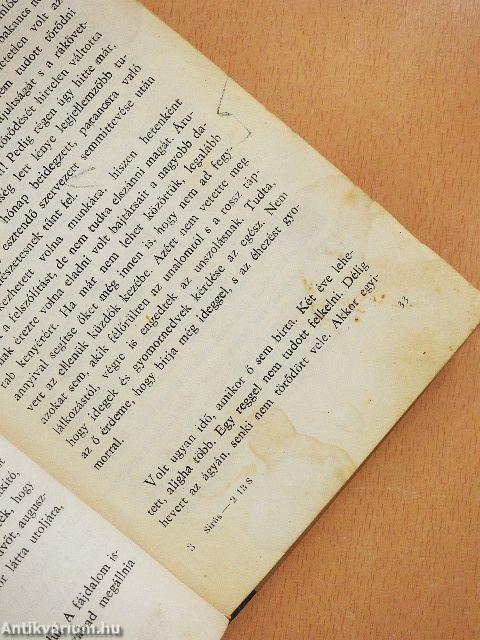 bakancs
etetlen volt az
em tudott törődni
apultságát s a rákövet-
törődését hirtelen váltotta
! Pedig régen úgy hitte már,
ség lett lénye legjellemzőbb tu-
hónap beidegzett, parancsra való
esztendő szervezett semmittevése után
észetesnek tűnt fel.
ezhetett volna munkára, hiszen hetenként
a felszólítást, de nem tudta elszánni magát. Áru-
nak érezte volna eladni volt bajtársait a nagyobb da-
rab kenyérért. Ha már nem lehet közöttük, legalább
annyival segítse őket még innen is, hogy nem ad fegy-
vert az ellenük küzdők kezébe. Azért nem vetette meg
azokat sem, akik félőrülten az unalomtól s a rossz táp-
lálkozástól, végre is engedtek az unszolásnak. Tudta,
hogy idegek és gyomornedvek kérdése az egész. Nem
az ő érdeme, hogy bírja még ideggel, s az éhezést gyo-
morral.
Volt ugyan idő, amikor ő sem bírta. Két éve lehe-
tett, aligha több. Egy reggel nem tudott felkelni. Délig
hevert az ágyán, senki nem törődött vele. Akkor egyi-
3 Sirás — 2 13 S
33
kító,
ek, hogy
vőt, augusz-
or látta utoljára,
A fájdalom is-
bad megállnia
Antikvárium.hu